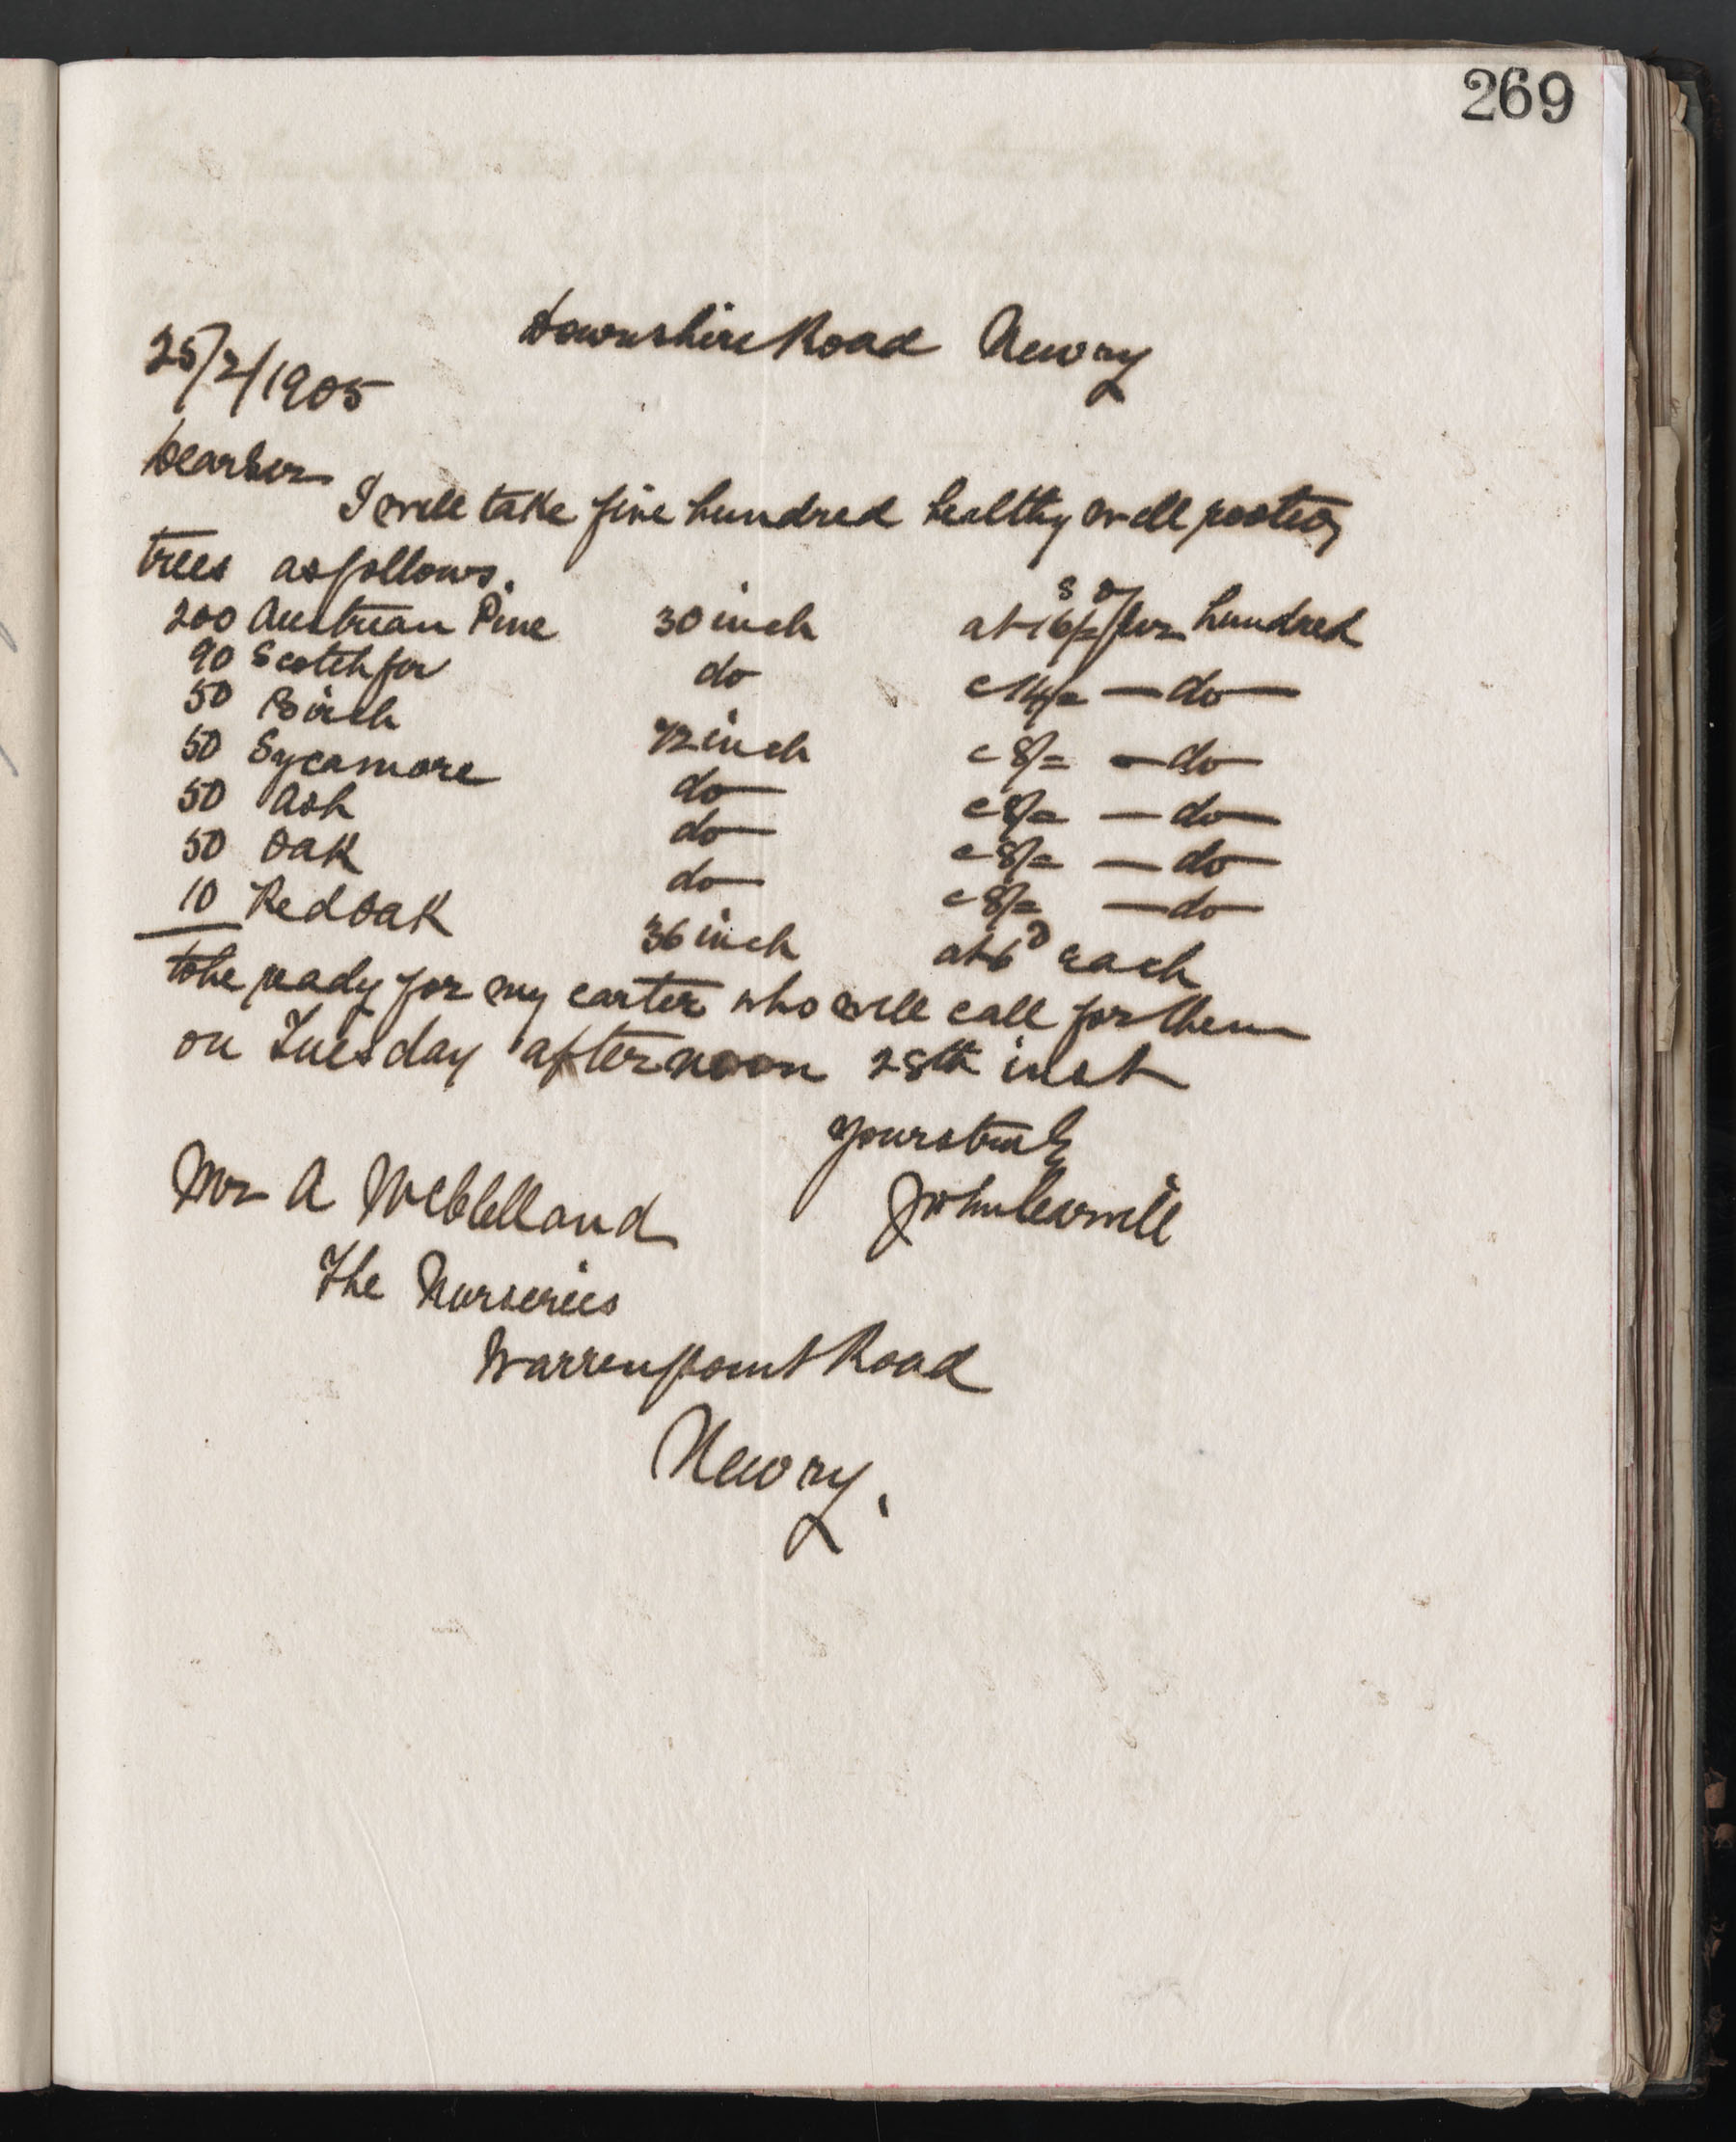 269
Downshire Road Newry
25/2/1905
Dear Sir
I will take five hundred healthy well rooted
trees as follows.
s d
200 Austrian Pine 30 inch at 16/= per hundred
90 Scotch fir do @ 14/= — do —
50 Birch 72 inch @ 8/= — do —
50 Sycamore do @ 8/= — do —
50 Ash do @ 8/= — do —
50 Oak do @ 8/= — do —
10 Red Oak 36 inch at 6d each
to be ready for my carter who will call for them
on Tuesday afternoon 28th inst
yours truly
Mr A McClelland
The Nurseries
Warrenpoint Road
Newry.